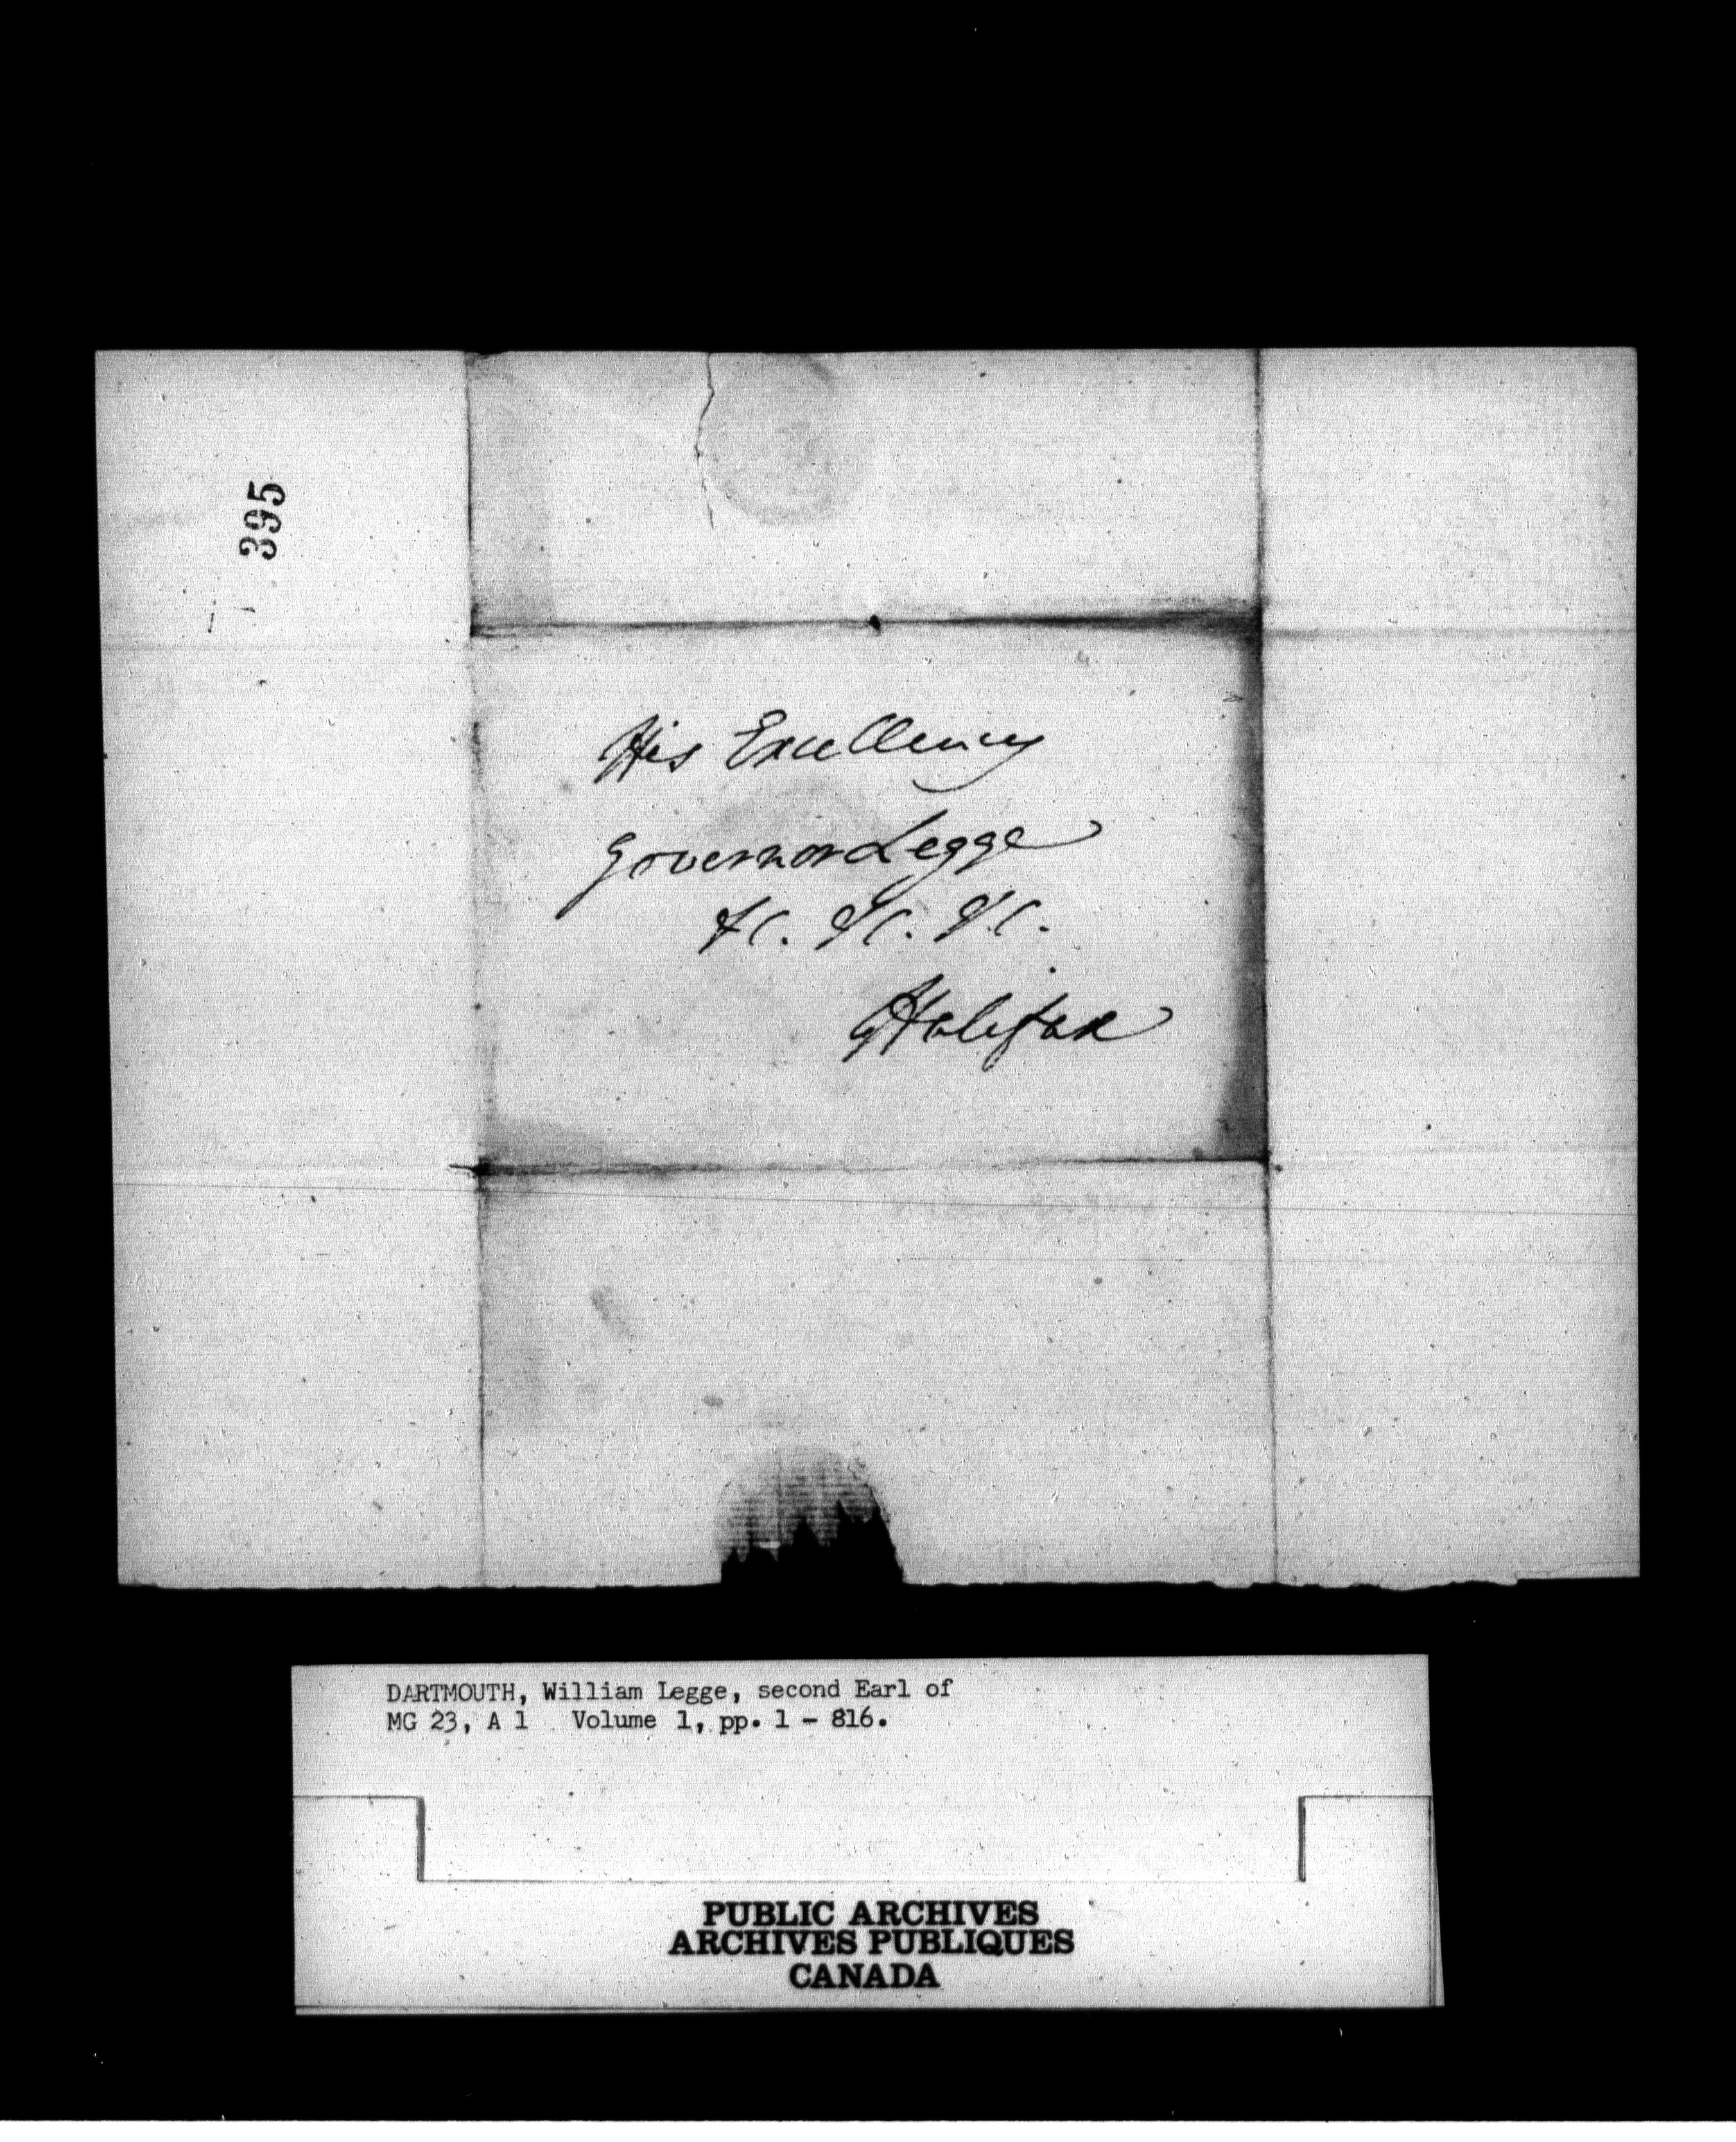 395
His Excellency
Governor Legge
&c. &c. &c.
Halifax
DARTMOUTH, William Legge, second Earl of
MG 23, A 1 Volume 1, pp. 1 - 816.
PUBLIC ARCHIVES
ARCHIVES PUBLIQUES
CANADA